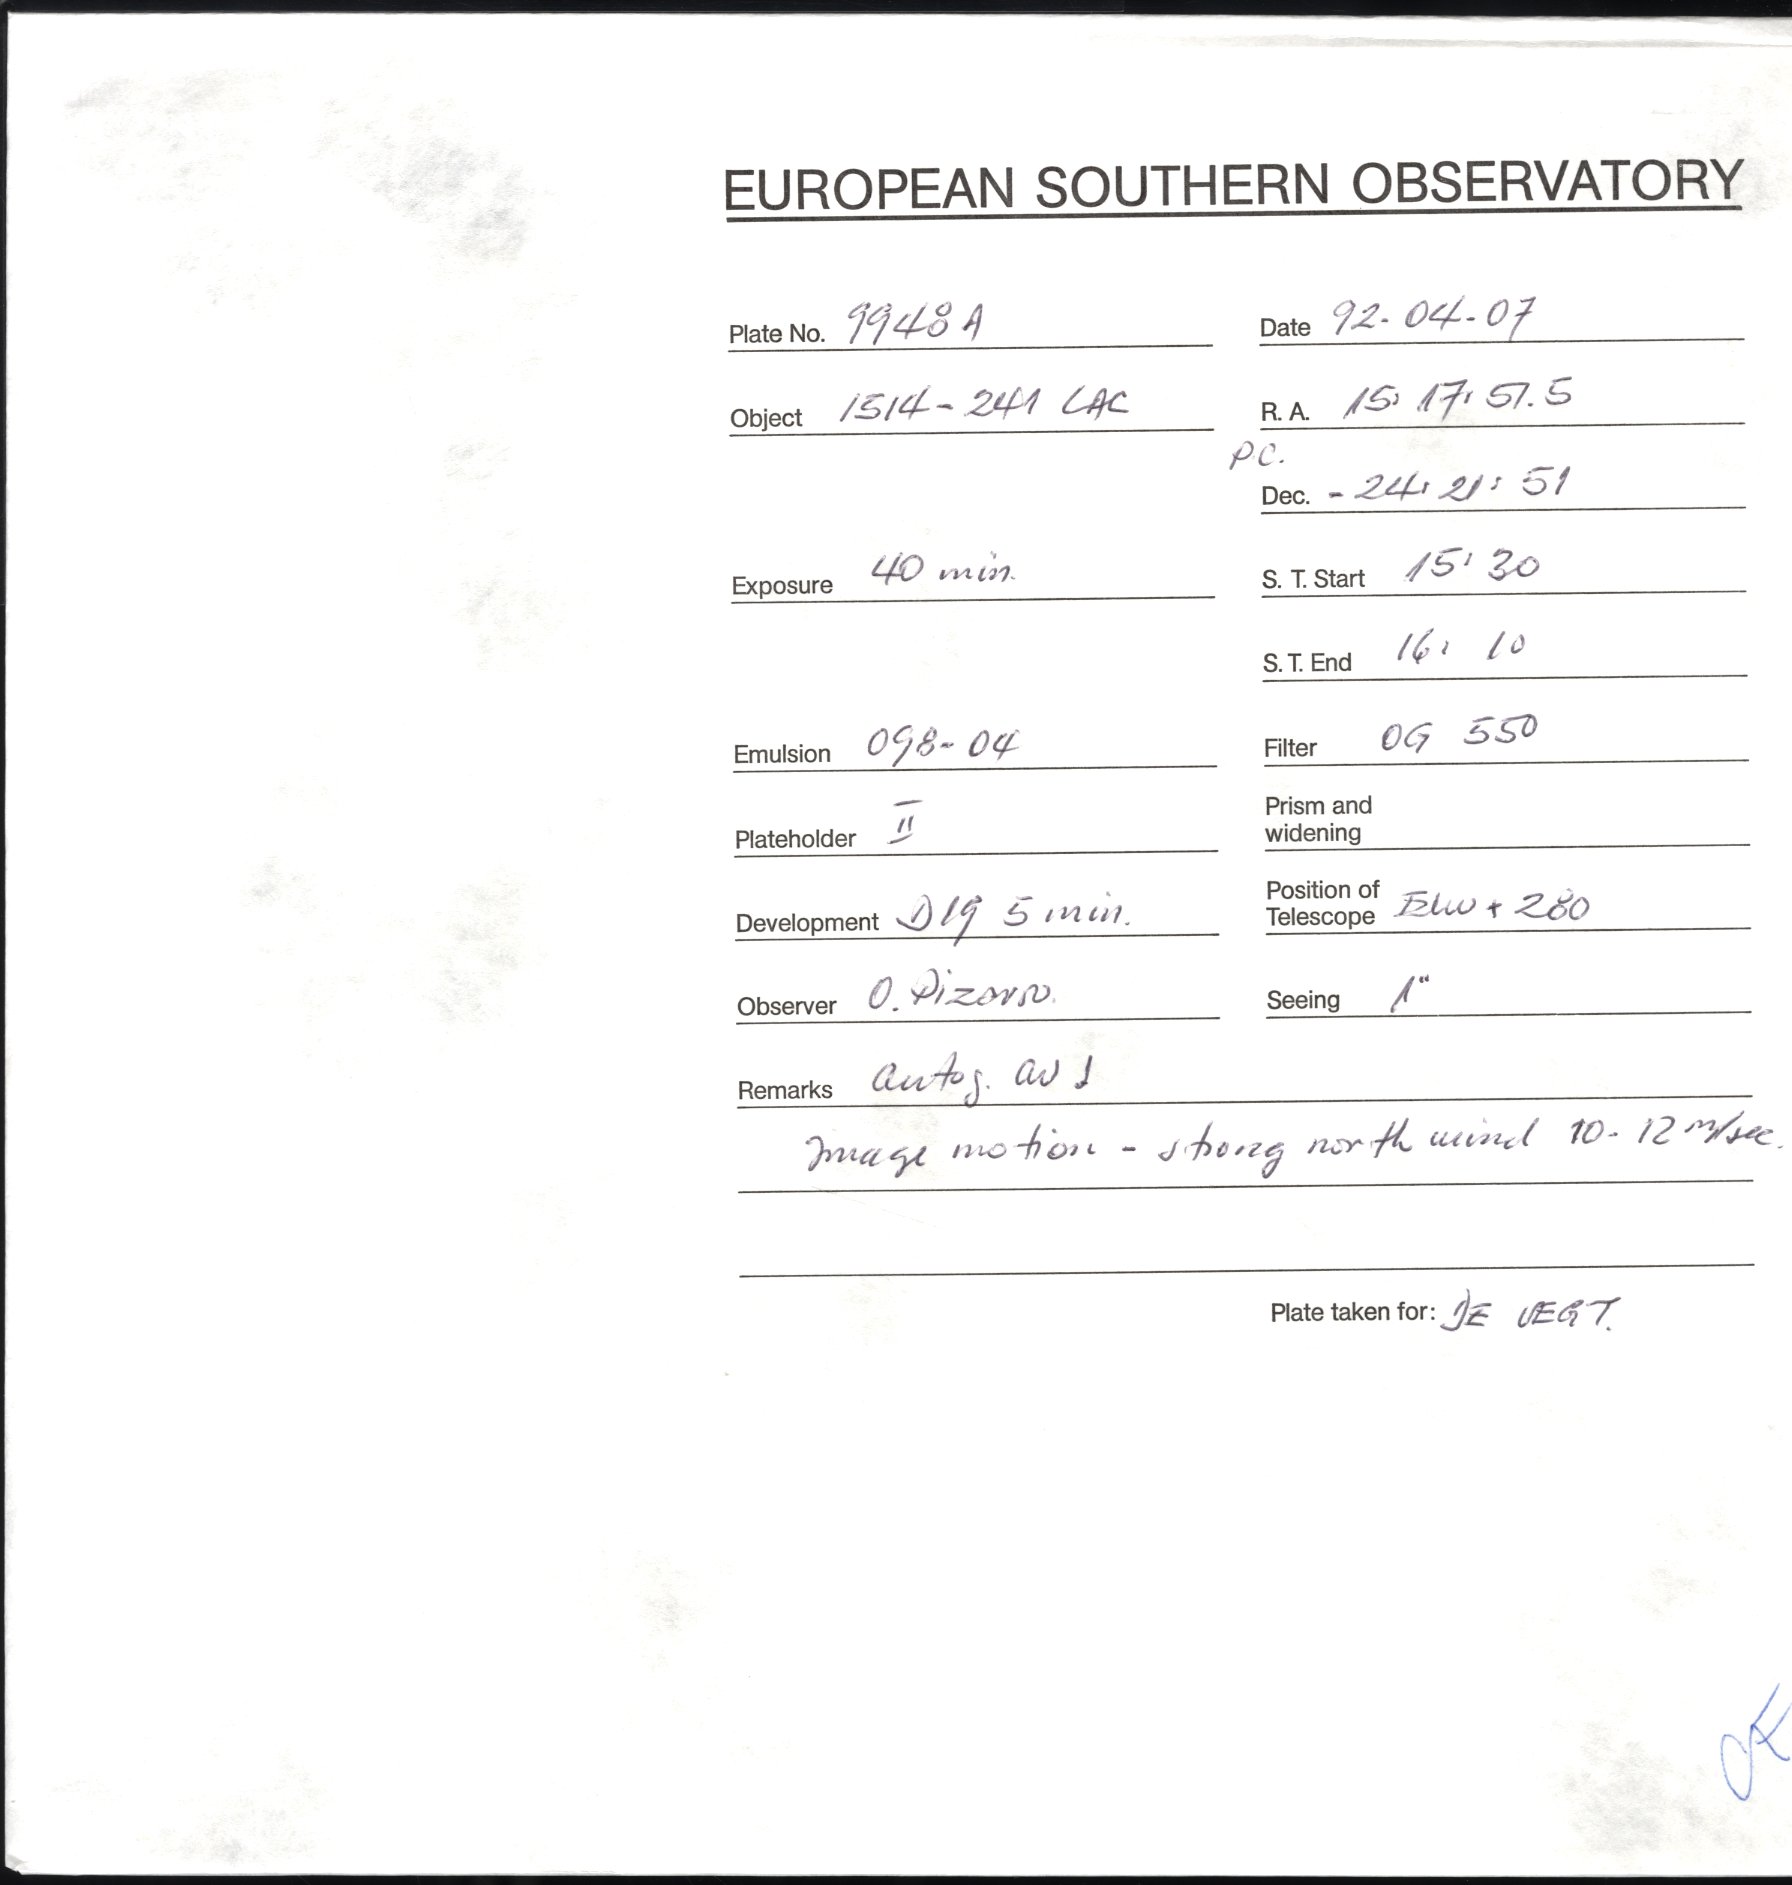 EUROPEAN SOUTHERN OBSERVATORY
Plate No. 9948 A
Date 92-04-07
Object 1514-241 LAC
R. A. 15: 17: 51.5
P.C.
Dec. - 24: 21: 51
Exposure 40 min.
S. T. Start 15: 30
S. T. End 16: 10
Emulsion 098-04
Filter OG 550
Plateholder II
Prism and
widening
Development D19 5 min.
Position of
Telescope + 280
Observer O. Pizarro.
Seeing 1"
Remarks autog.
Image motion - strong north wind 10-12 m/sec.
Plate taken for: DE VEGT.